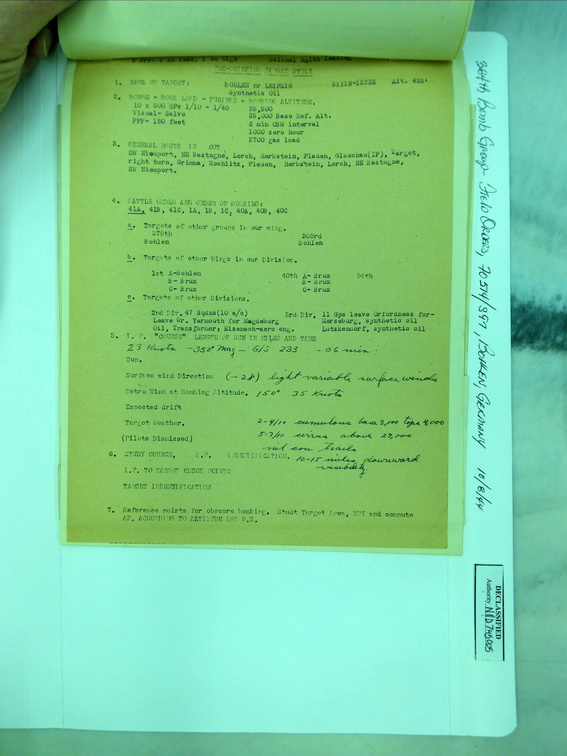 PRE-BRIEFING TARGET STUDY
1. NAME OF TARGET: BOHLEN nr LEIPZIG 5111N-1223E Alt. 425'
Synthetic Oil
2. BOMBS - BOMB LOAD - FUZINGS - BOMBING ALTITUDE.
10 x 500 GPs 1/10 - 1/40 26,500
Visual- Salvo 25,000 Base Ref. Alt.
PFF- 150 feet 2 min CBW interval
1000 zero hour
2700 gas load
3. GENERAL ROUTE IN OUT
SW Nieuport, NE Bastogne, Lorch, Herbstein, Plauen, Glauchau(IP), Target,
right turn, Grimma, Rochlitz, Plauen, Herbstein, Lorch, NE Bastogne,
SW Nieuport.
4. BATTLE ORDER AND ORDER OF BOMBING:
41A, 41B, 41C, 1A, 1B, 1C, 40A, 40B, 40C
a. Targets of other groups in our wing.
379th 303rd
Bohlen Bohlen
b. Targets of other Wings in our Division.
1st A-Bohlen 40th A- Brux 94th
B- Brux B- Brux
C- Brux C- Brux
c. Targets of other Divisions.
2nd Div. 47 Sqdns(10 e/c) 3rd Div. 11 Gps leave Orfordness for-
Leave Gr. Yarmouth for Magdeburg Merseburg, synthetic oil
Oil, Transformer; Eisenach-aero eng. Lutzkendorf, synthetic oil
5. I.P. "COURSE" LENGTH OF RUN IN MILES AND TIME
23 Knots -350° Mag - G/S 233 - 06 min.
Sun.
Surface wind Direction (-28) light variable surface winds
Metro Wind at Bombing Altitude. 150° 35 Knots
Expected drift
Target Weather. 2-4/10 cumulous base 3,000 tops 4,000
(Pilots Dismissed) 5-7/10 cirrus above 27,000
6. STUDY COURSE, I.P. INDENTIFICATION. 10-15 miles downward
visibility
I.P. TO TARGET CHECK POINTS
TARGET INDENTIFICATION
7. Reference points for obscure bombing. Studt Target Area, MPI and compute
AP, ACCORDING TO ALTITUDE AND G.S.
384th Bomb Group- Field Orders, 70514/397, Bohlen, Germany 10/8/44
DECLASSIFIED
Authority NND 745005